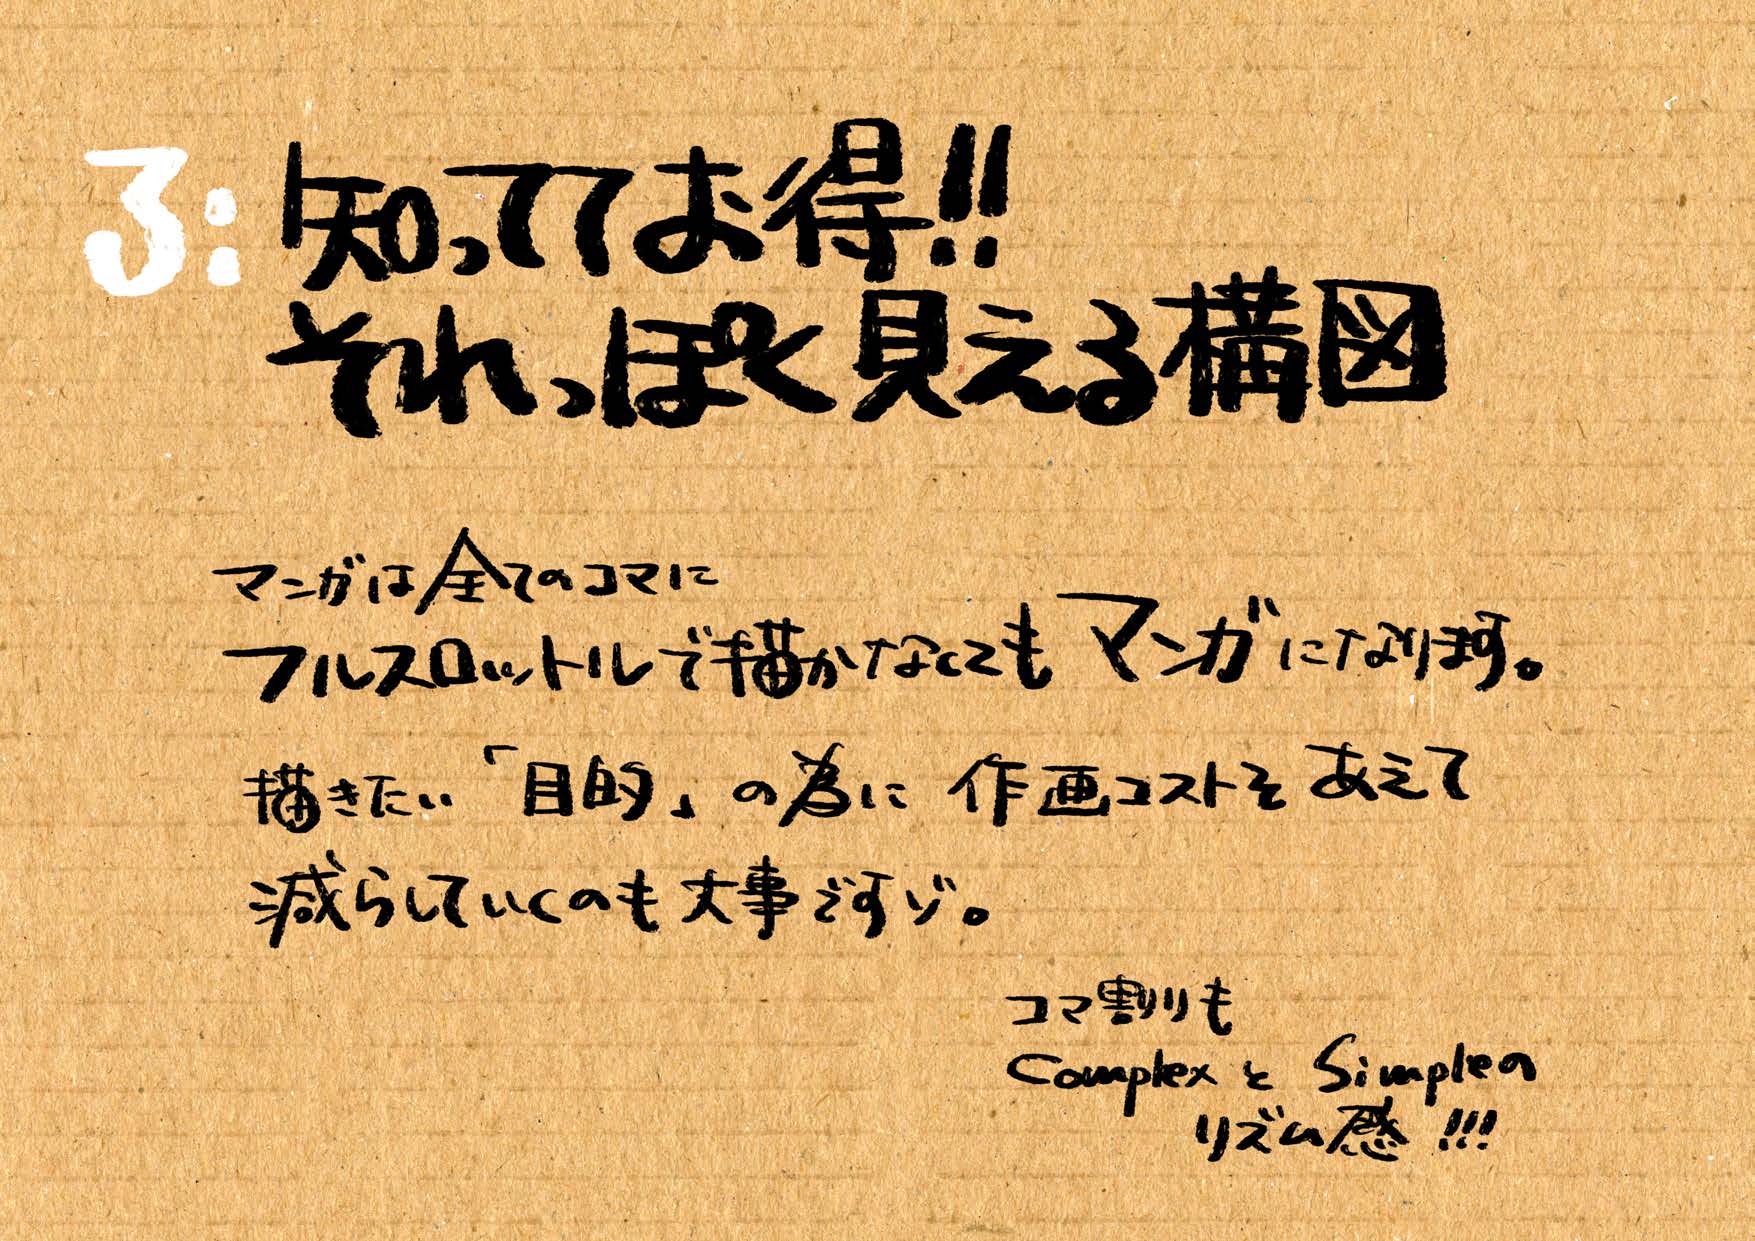 3: 知っててお得!!
それっぽく見える構図
マンガは全てのコマに
フルスロットルで描かなくてもマンガになります。
描きたい「目的」の為に 作画コストをあえて
減らしていくのも大事ですゾ。
コマ割りも
Complexと Simpleの
リズム感!!!